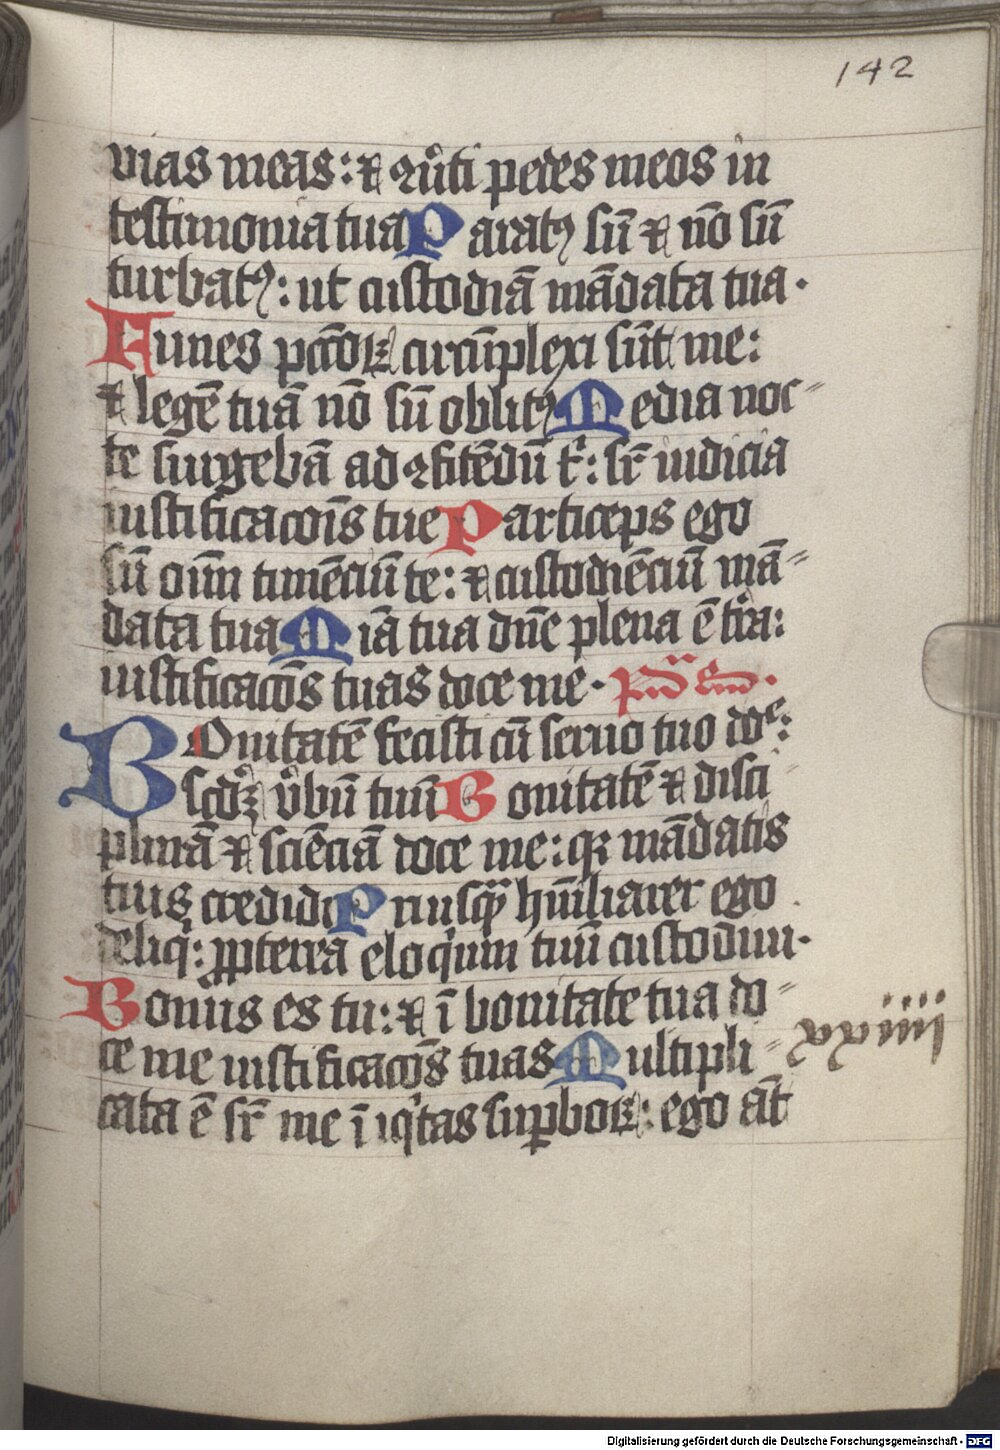 142
vias meas: ⁊ ꝯv̾ti pedes meos in
testimonia tua Paratꝰ su̅ ⁊ no̅ su̅
turbatꝰ: ut custodia̅ ma̅data tua.
Funes pcc̅oꝝ circu̅plexi su̅t me:
⁊ lege̅ tua̅ no̅ su̅ oblitꝰ Media noc-
te surgeba̅ ad ꝯfite̅du̅ tͥ: sr̅ iudicia
iustificacoi̅s tue Particeps ego
su̅ oi̅m time̅ciu̅ te: ⁊ custodie̅ciu̅ ma̅-
data tua Mi̅a tua dn̅e plena e̅ tr̅a:
iustificaco̅s tuas doce me.
BOnitate̅ fecisti cu̅ seruo tuo do̅e:
scd̅ꝫ v̾bu̅ tuu̅ Bonitate̅ ⁊ disci
plina̅ ⁊ scie̅cia̅ doce me: qꝛ ma̅datis
tuis credidi Priusqᷓ hu̅iliarer ego
deliqͥ: ꝓpterea eloqͥum tuu̅ custodiui.
Bonus es tu: ⁊ i̅ bonitate tua do-
ce me iustificaco̅s tuas Multipli-
cata e̅ sr̅ me i̅iqͥtas suꝑboꝝ: ego a̅t
Digitalisierung gefördert durch die Deutsche Forschungsgemeinschaft - DFG